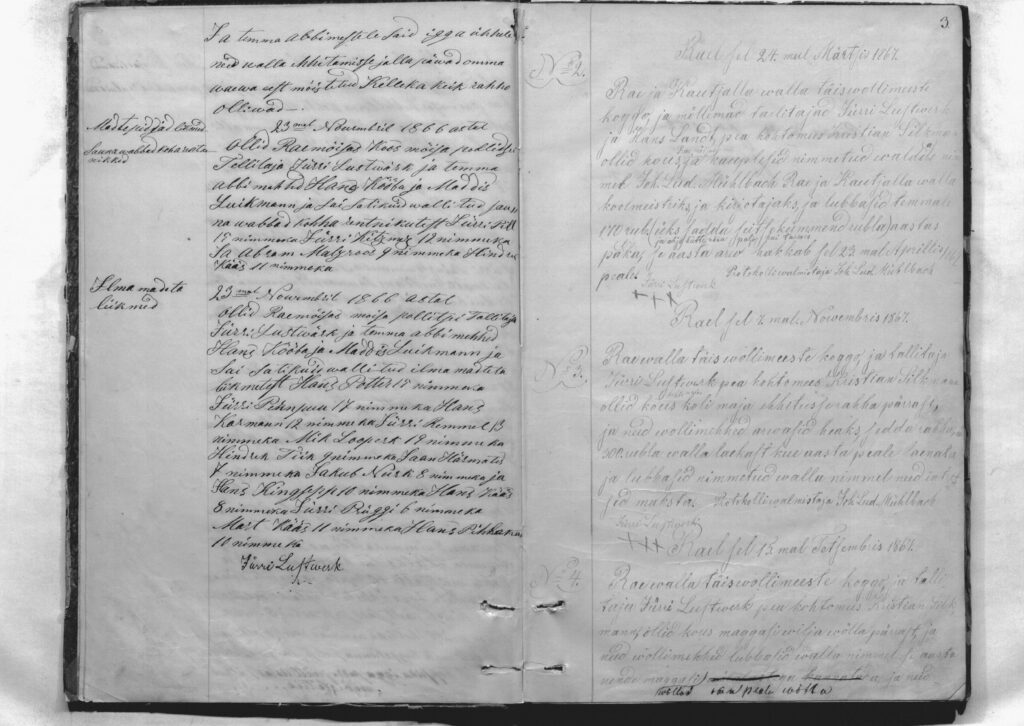 Ja temma abbimestele said igga ühhele
neid walla ehhitamisse jalla päwad omma
waewa eest möistetud Kelleka keik rahho
olliwad
Maatepiddjad
Saunawabbadkoha rentnikkud
23mal Nowembril 1866 astal
ollid Raemöisas koos möija pollitsei
Tallitaja Jürri Lustwärk ja temma
abbi mehhed Hans Kööba ja Maddis
Luikmann ja sai Satikud wallitud sau
na wabbad kohha rentnikutest Jürri
17 nimmega Jürri 12 nimmeka
Ja Abram Malgroos 9 nimmeka Hindrek
Kääs 11 nimmeka
Ilma madeta
liikmed
23mal Nowembril 1866 astal
ollid Raemöisas moija pollitsei Tallitaja
Jürri Lustwärk ja temma abbi mehhed
Hans Kööta ja Maddis Luikmann ja
Sai Satikuds wallitud ilma madeta
liikmetest Hans Potter 13 nimmeka
Jürri Pennpuu 17 nimmeka Hans
Karmann 12 nimmeka Jürri Remmel 13
nimmeka Mik Looperk 19 nimmeka
Hindrek Tiik 9 nimmeka Jaan Härmatis
7 nimmeka Jakub Nurk 8 nimmeka ja
Hans Kingsepp 10 nimmeka Hans Kääs
8 nimmeka Jürri Röggi 6 nimmeka
Mart Kääs 11 nimmeka Hans Pihhakas
10 nimmeka
Jürri Lustwerk
3
Rael sel 24. mal Märtsis 1867.
No 2.
Rae ja Kautjalla walla täiswollimeeste
koggo, ja möllimad taelitajad Jürri Lustwerk
ja Hans Landt, pea kohtomees Kristian Silkmann
ollid kous ja kauplesid nimmetud waldade nim
mel Joh. Lud. Mühlbach Rae ja Kautjalla walla
koolmeistriks ja kirjotajaks, ja lubbasid temmale
170 rubl (üks sadda seitsekümmend rubla) aastas
palkas, se aasta arw hakkab sel 23. mal Aprillis 1867
peale. Protokolli walmistaja Joh. Lud. Mühlbach
Jürri Lustwerk
XXX
Rael sel 7. mal Nowembris 1867.
No 3.
Rae walla täiswöllimeeste koggo, ja tallitaja
Jürri Lustwerk pea kohtomees Kristian Silkmann
ollid kous koli maja ehhitusse rahha pärrast,
ja need wöllimehhed arwasid heaks sedda rahha
300 rubla walla laekast kue aasta peale laenata
ja lubbasid nimmetud walla nimmel neid int
sid maksta. Protokolli walmistaja Joh. Lud. Mühlbach
Jürri Lustwerk
XXX
Rael sel 15. mal Detsembris 1867.
No 4.
Rae walla täiswöllimeeste koggo, ja talli
taja Jürri Lustwerk pea kohtomees Kristian Silk
mann, ollid kous maggasi wilja wölla pärrast, ja
need wöllimehhed lubbasid walla nimmel, se aasta
nende maggasi ja neid
wöllad wan peale wötta